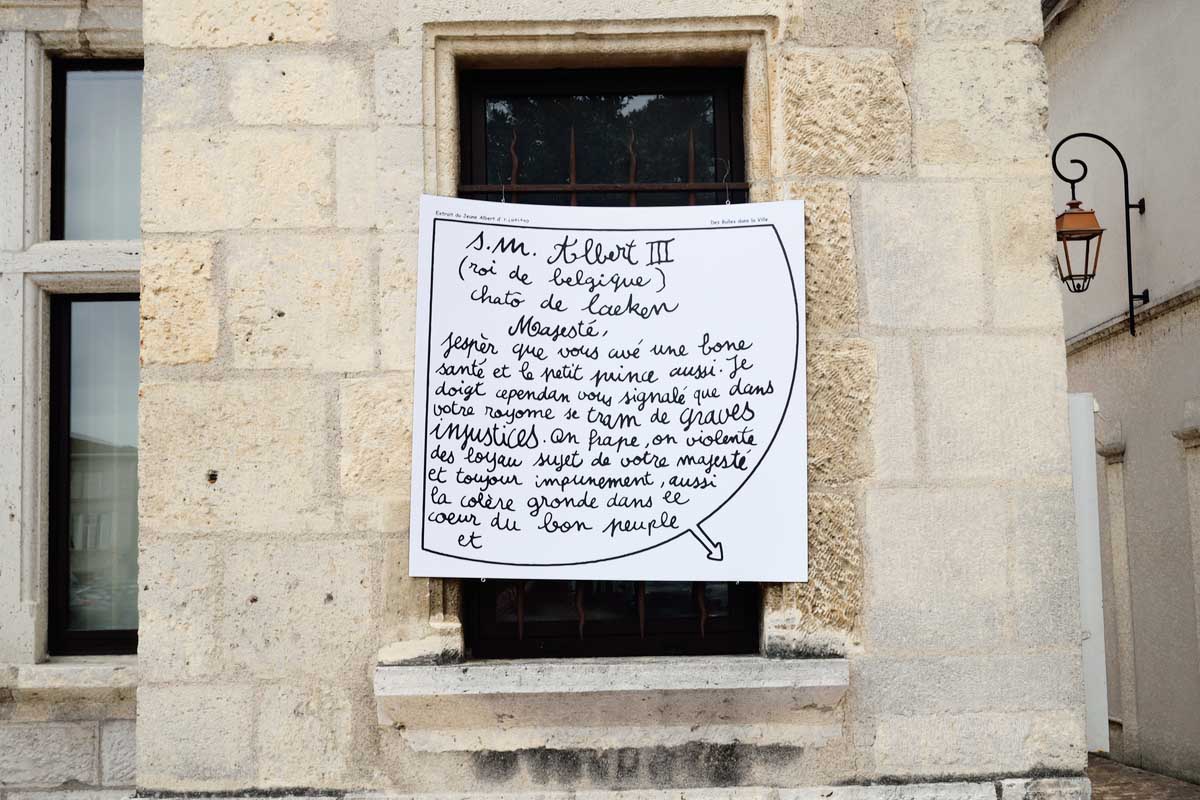 Extrait du Jeune Albert d'Y.CHALAND
Des Bulles dans la Ville
S.M. Albert III
(roi de belgique)
chatô de laeken
Majesté,
Jespèr que vous avé une bone
santé et le petit prince aussi. Je
doigt cependan vous signalé que dans
votre royome se tram de graves
injustices. On frape, on violente
des loyau sujet de votre majesté
et toujour impunement, aussi
la colère gronde dans le
coeur du bon peuple
et